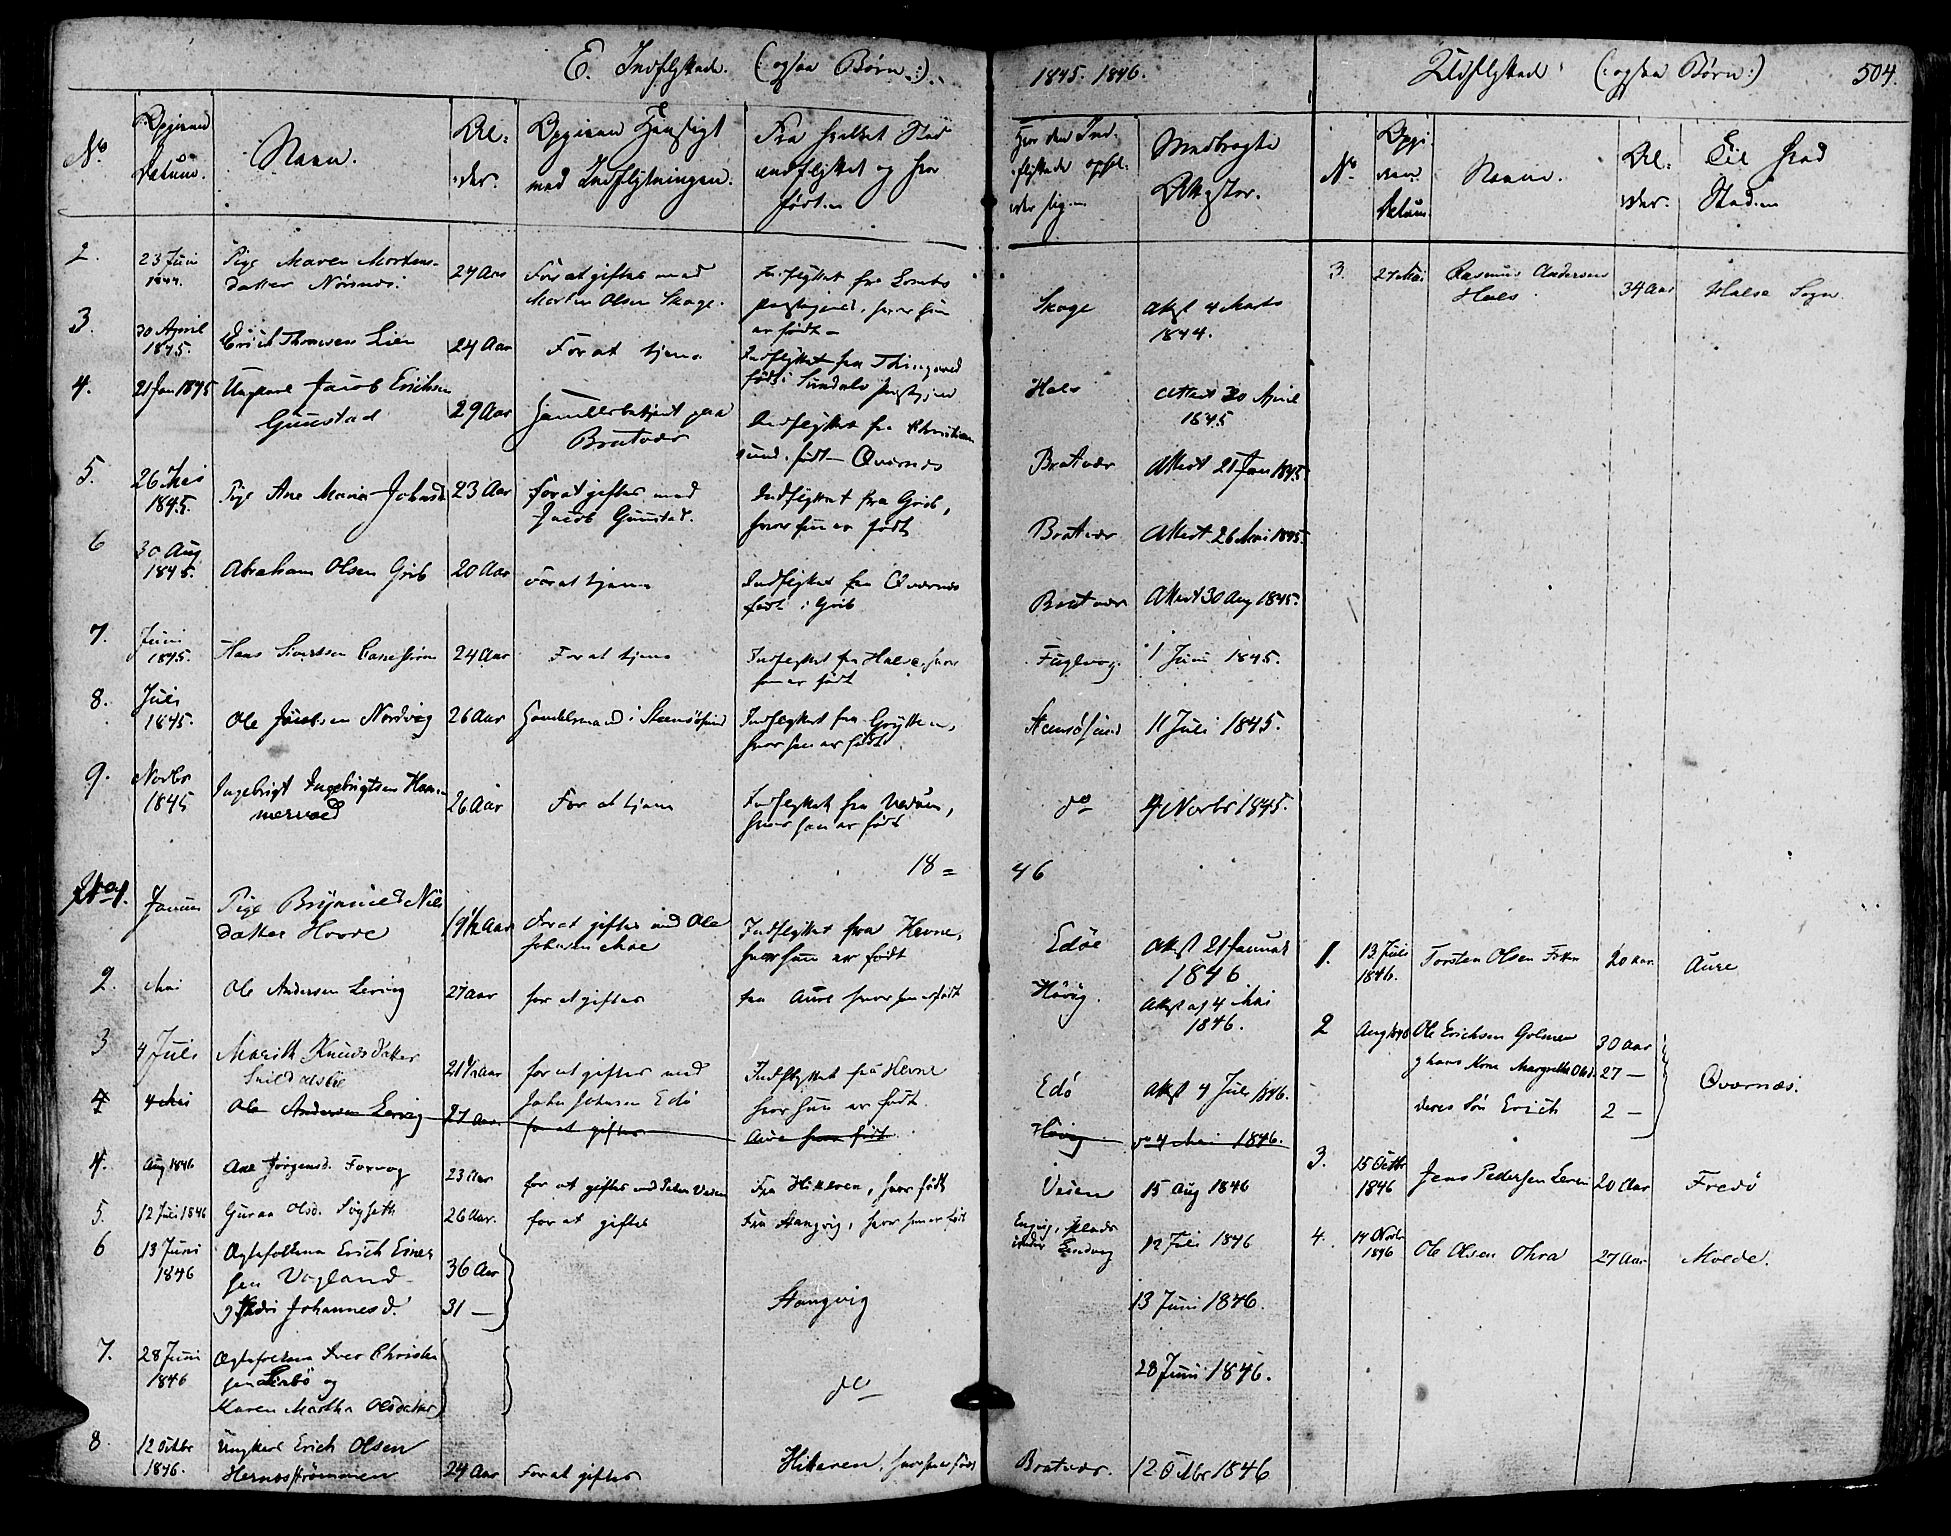 E. Indflyttede (: ogsaa Børn :)
1845. 1846.
Udflyttede (: ogsaa Børn :)
504.
No
Opgivend Datum.
Navn.
Al-
der.
Opgiven Hensigt
med Indflytningen.
Fra hvilket Sted
indflyttet og hvor
født.
Hvor den Ind-
flyttede ophol-
der sig.
Medbragte
Attester.
No
Datum
Navn.
Al-
der.
Til hvad
Sted.
2. 23 Juni 1844. Pige Maren Mortens-
datter Nørsnes. 24 Aar For at giftes med
Morten Olsen Skage. Indflyttet fra
hvor hun
er født Skage Attest 4 Marts
1844.
3. 30 April
1845. Erich Thomesen Lien 24 Aar For at tjene Indflyttet fra Thingvold
født i Sundals Præstegjeld Hals Attest 30 April
1845
4. 21 Jan 1845 Ungkarl Jacob Erichsen
Gunstad 29 Aar Handelsbetjent paa
Bratvær Indflyttet fra Christian-
sund. født Qvernes Bratvær Attest 21 Jan 1845.
5. 26 Mai
1845. Pige Ane Maria Johnsd. 23 Aar For at giftes med
Jacob Gunstad. Indflyttet fra Grib,
hvor hun er født Bratvær Attest 26 Mai 1845.
6 30 Aug
1845. Abraham Olsen Grib 20 Aar For at tjene Indflyttet fra Qvernes
født i Grib Bratvær Attest 30 Aug 1845.
7. Juni
1845. Hans Sivertsen 24 Aar For at tjene Indflyttet fra Halse, hvor
han er født Fuglevog. 1 Juni 1845.
8. Juli
1845. Ole Jacobsen Nordvig 26 Aar Handelsmand i Steensøsund Indflyttet fra Grytten,
hvor han er født Steensøsund 11 Juli 1845.
9. Novbr
1845 Ingebrigt Ingebrigtsen Ham-
mervold 26 Aar For at tjene Indflyttet fra Vedøen,
hvor han er født do 4 Novbr 1845.
3. 27 Mai Rasmus Andersen
Hals. 34 Aar Halse Sogn
18 = 46
No 1. Januar Pige Nils
datter Hovde 19½ Aar For at giftes med Ole
Johnsen Indflyttet fra Hevne,
hvor hun er født Edøe Attest 21 Januar
1846
2. Mai Ole Andersen Lervig 27 Aar for at giftes fra Aure hvor han er født Høvig. Attest af 4 Mai
1846.
3 4 Juli Marith Knudsdatter
21½ Aar for at giftes med
John Johnsen Edø Indflyttet fra Hevne
hvor hun er født. Edø Attest 4 Juli 1846.
4 4 Mai Ole Andersen Lervig 27 Aar for at giftes Aure hvor født Høvig do 4 Mai 1846.
4. Aug 1846 Ane Jørgensd. Forvog 23 Aar for at giftes med Fra Hitteren, hvor født Veien 15 Aug 1846
5. 12 Juli 1846 Guraa Olsd. Søgseth 26 Aar. for at giftes Fra Stangvig, hvor hun er født 12 Juli 1846
6 13 Juni
1846 Ægtefolkene Erich Einer-
sen Vogland 36 Aar
g Johannesd. 31 —
Stangvig 13 Juni 1846.
7. 28 Juni
1846 Ægtefolkene Iver Christen
sen og
Maren Martha Olsdatter do 28 Juni 1846.
8. 12 Octbr
1846. Ungkarl Erich Olsen
Hernesstrømmen 24 Aar For at giftes Hitteren, hvor han er født Bratvær. 12 Octbr 1846
1. 13 Juli
1846. Torsten Olsen 20 Aar Aure
2 Aug 1846 Ole Erichsen Golmen 30 Aar
g hans Kone Margrethe Olsd. 27 —
deres Søn Erich 2 —
Qvernes.
3. 15 Octbr
1846 Jens Pedersen 20 Aar Fredø
4. 14 Novbr
1846 Ole Olsen 27 Aar Molde.